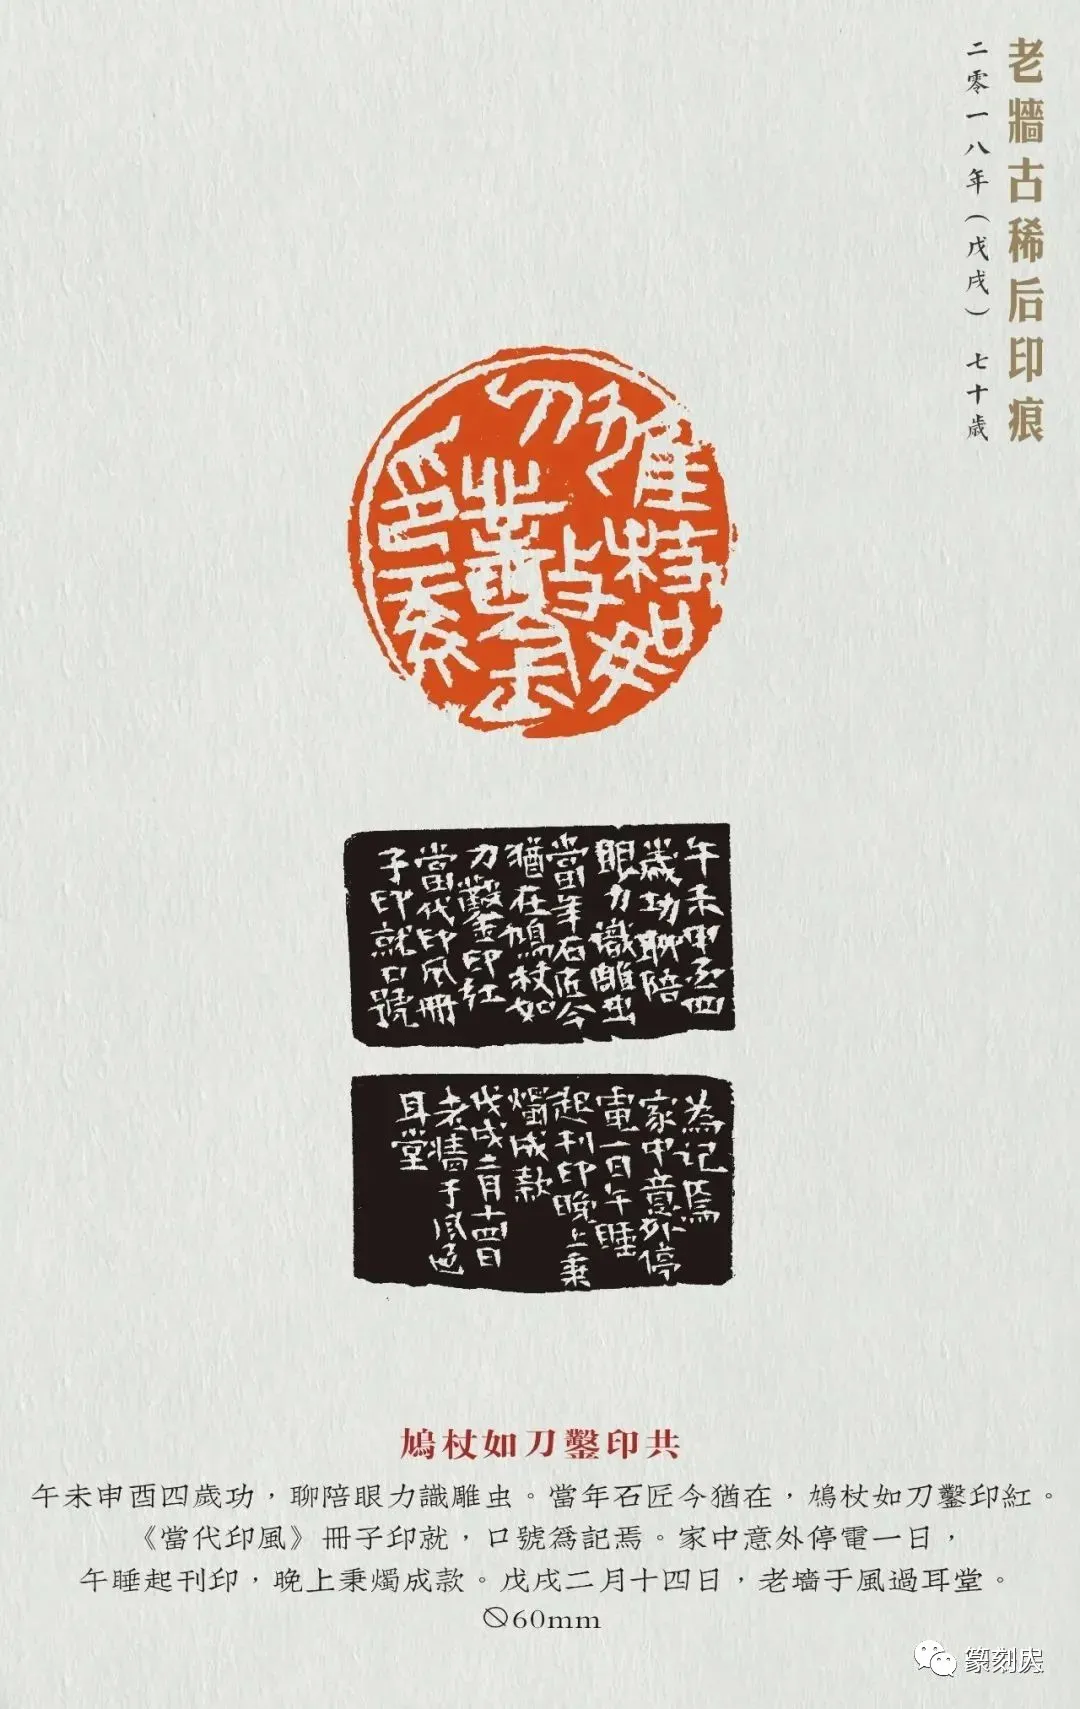 老牆古稀后印痕
二零一八年（戊戌） 七十歲
午未申酉四
歲功聊陪
眼力識雕虫
當年石匠今
猶在鳩杖如
刀鑿印紅
當代印風冊
子印就口號
為记焉
家中意外停
電一日午睡
起刊印晚上秉
燭成款
戊戌二月十四日
老牆于风過
耳堂
鳩杖如刀鑿印共
午未申酉四歲功，聊陪眼力識雕虫。當年石匠今猶在，鳩杖如刀鑿印紅。
《當代印風》冊子印就，口號爲記焉。家中意外停電一日，
午睡起刊印，晚上秉燭成款。戊戌二月十四日，老墻于風過耳堂。
⦸60mm
篆刻虎